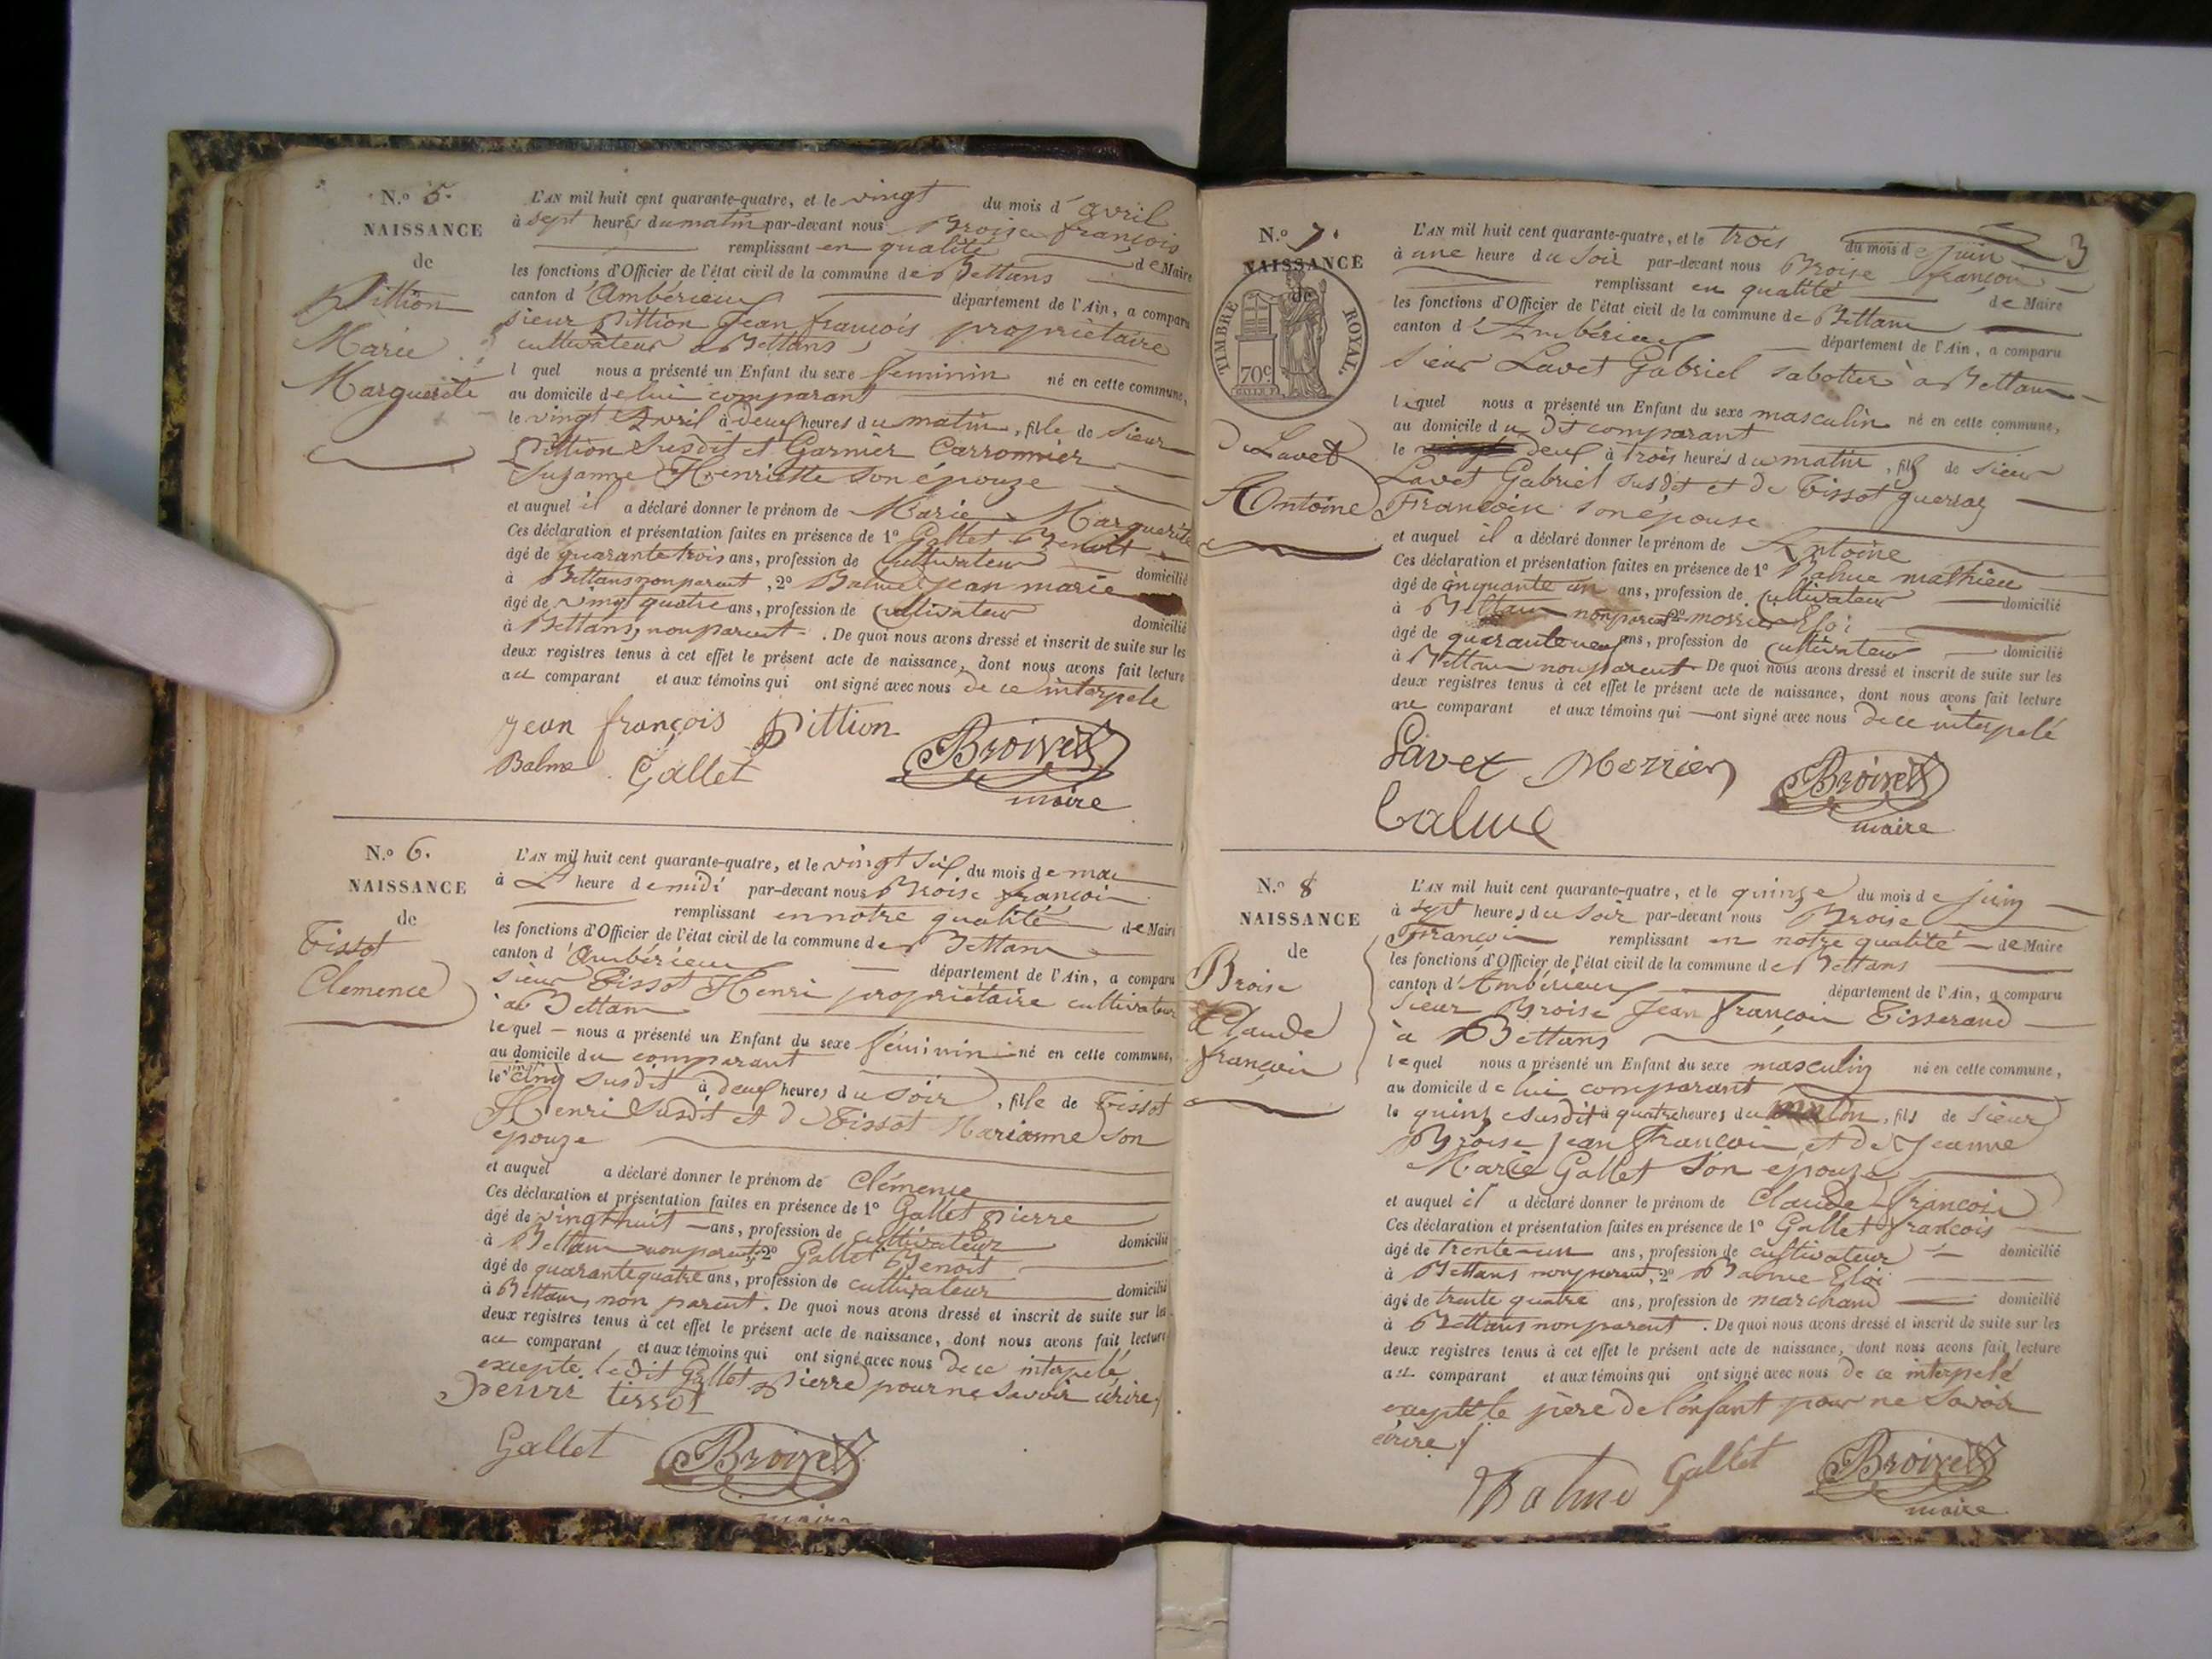 N.o 5.
NAISSANCE
de
Pittion
Marie
Marguerite
L'AN mil huit cent quarante-quatre, et le vingt du mois d'avril
à sept heures du matin par-devant nous Broise françois
remplissant en qualité de Maire
les fonctions d'Officier de l'état civil de la commune de Bettans
canton d'Ambérieux département de l'Ain, a comparu
sieur Pittion Jean françois propriétaire
cultivateur à Bettans
l quel nous a présenté un Enfant du sexe feminin né en cette commune,
au domicile de lui comparant
le vingt Avril à deux heures du matin, fille de sieur
Pittion susdit et Garnier Carronnier
Suzanne Henriette son épouze
et auquel il a déclaré donner le prénom de Marie Marguerite
Ces déclaration et présentation faites en présence de 1o Gallet Benoit
âgé de quarante trois ans, profession de Cultivateur domicilié
à Bettans non parent, 2o Balme jean marie
âgé de vingt quatre ans, profession de Cultivateur domicilié
à Bettans, non parent. De quoi nous avons dressé et inscrit de suite sur les
deux registres tenus à cet effet le présent acte de naissance, dont nous avons fait lecture
au comparant et aux témoins qui ont signé avec nous de ce interpelé
jean françois pittion
Balme Gallet Broise
maire
N.o 6.
NAISSANCE
de
Tissot
Clemence
L'AN mil huit cent quarante-quatre, et le vingt six du mois de mai
à heure de midi par-devant nous Broise françois
remplissant en notre qualité de Maire
les fonctions d'Officier de l'état civil de la commune de Bettans
canton d'Ambérieux département de l'Ain, a comparu
sieur Tissot Henri propriétaire cultivateur
à Bettans
lequel nous a présenté un Enfant du sexe féminin né en cette commune,
au domicile du comparant
le vingt cinq susdit à deux heures du soir, fille de Tissot
Henri susdit et de Tissot Marianne son
épouze
et auquel a déclaré donner le prénom de Clémence
Ces déclaration et présentation faites en présence de 1o Gallet pierre
âgé de vingt huit ans, profession de cultivateur domicilié
à Bettans non parent, 2o Gallet Benoit
âgé de quarante quatre ans, profession de cultivateur domicilié
à Bettans, non parent. De quoi nous avons dressé et inscrit de suite sur les
deux registres tenus à cet effet le présent acte de naissance, dont nous avons fait lecture
au comparant et aux témoins qui ont signé avec nous de ce interpelé
excepte le dit Gallet Pierre pour ne savoir écrire
henri tissot
Gallet Broise
maire
3
N.o 7.
NAISSANCE
de
TIMBRE ROYAL.
70c
Lavet
Antoine
L'AN mil huit cent quarante-quatre, et le trois du mois de juin
à une heure du soir par-devant nous Broise françois
remplissant en qualité de Maire
les fonctions d'Officier de l'état civil de la commune de Bettans
canton d'Ambérieux département de l'Ain, a comparu
sieur Lavet Gabriel sabotier à Bettans
lequel nous a présenté un Enfant du sexe masculin né en cette commune,
au domicile du dit comparant
le deux à trois heures du matin, fils de sieur
Lavet Gabriel susdit et de Tissot
Françoise son épouse
et auquel il a déclaré donner le prénom de Antoine
Ces déclaration et présentation faites en présence de 1o Balme mathieu
âgé de cinquante un ans, profession de Cultivateur domicilié
à Bettans non parent 2o morrier Eloi
âgé de quarante neuf ans, profession de Cultivateur domicilié
à Bettans non parent De quoi nous avons dressé et inscrit de suite sur les
deux registres tenus à cet effet le présent acte de naissance, dont nous avons fait lecture
au comparant et aux témoins qui ont signé avec nous de ce interpelé
Lavet Morrier Broise
balme maire
N.o 8
NAISSANCE
de
Broise
Claude
françois
L'AN mil huit cent quarante-quatre, et le quinze du mois de juin
à sept heures du soir par-devant nous Broise
François remplissant en notre qualité de Maire
les fonctions d'Officier de l'état civil de la commune de Bettans
canton d'Ambérieux département de l'Ain, a comparu
sieur Broise Jean françois Tisserand
à Bettans
lequel nous a présenté un Enfant du sexe masculin né en cette commune,
au domicile de lui comparant
le quinze susdit à quatre heures du matin, fils de sieur
Broise Jean françois et de Jeanne
Marie Gallet son épouze
et auquel il a déclaré donner le prénom de Claude françois
Ces déclaration et présentation faites en présence de 1o Gallet francois
âgé de trente-un ans, profession de cultivateur domicilié
à Bettans non parent, 2o Balme Eloi
âgé de trente quatre ans, profession de marchand domicilié
à Bettans non parent. De quoi nous avons dressé et inscrit de suite sur les
deux registres tenus à cet effet le présent acte de naissance, dont nous avons fait lecture
au comparant et aux témoins qui ont signé avec nous de ce interpelé
excepté le père de l'enfant pour ne savoir
écrire
Balme Gallet Broise
maire